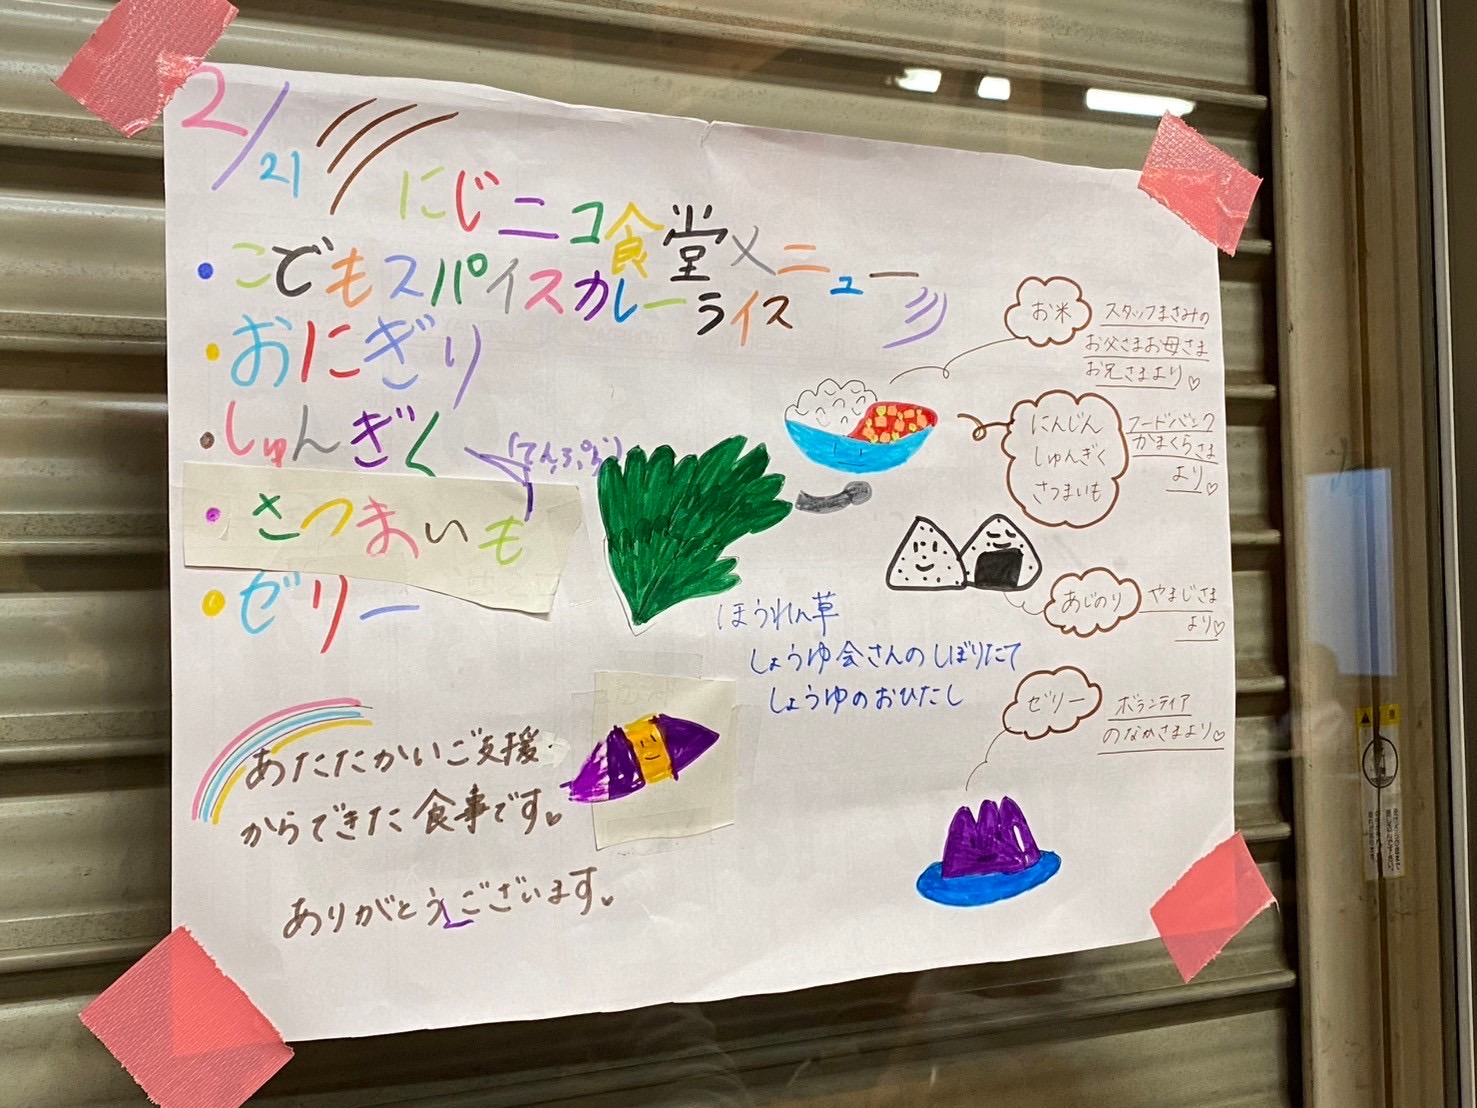 2/21
にじニコ食堂メニュー
・こどもスパイスカレーライス
・おにぎり
・しゅんぎく
(てんぷら)
・さつまいも
・ゼリー
お米
スタッフまさみの
お父さまお母さま
お兄さまより♡
にんじん
しゅんぎく
さつまいも
フードバンク
かまくらさま
より♡
あじのり
やまじさま
より♡
ほうれん草
しょうゆ会さんのしぼりたて
しょうゆのおひたし
ゼリー
ボランティア
のなかさまより♡
あたたかいご支援
からできた食事です。
ありがとうございます。